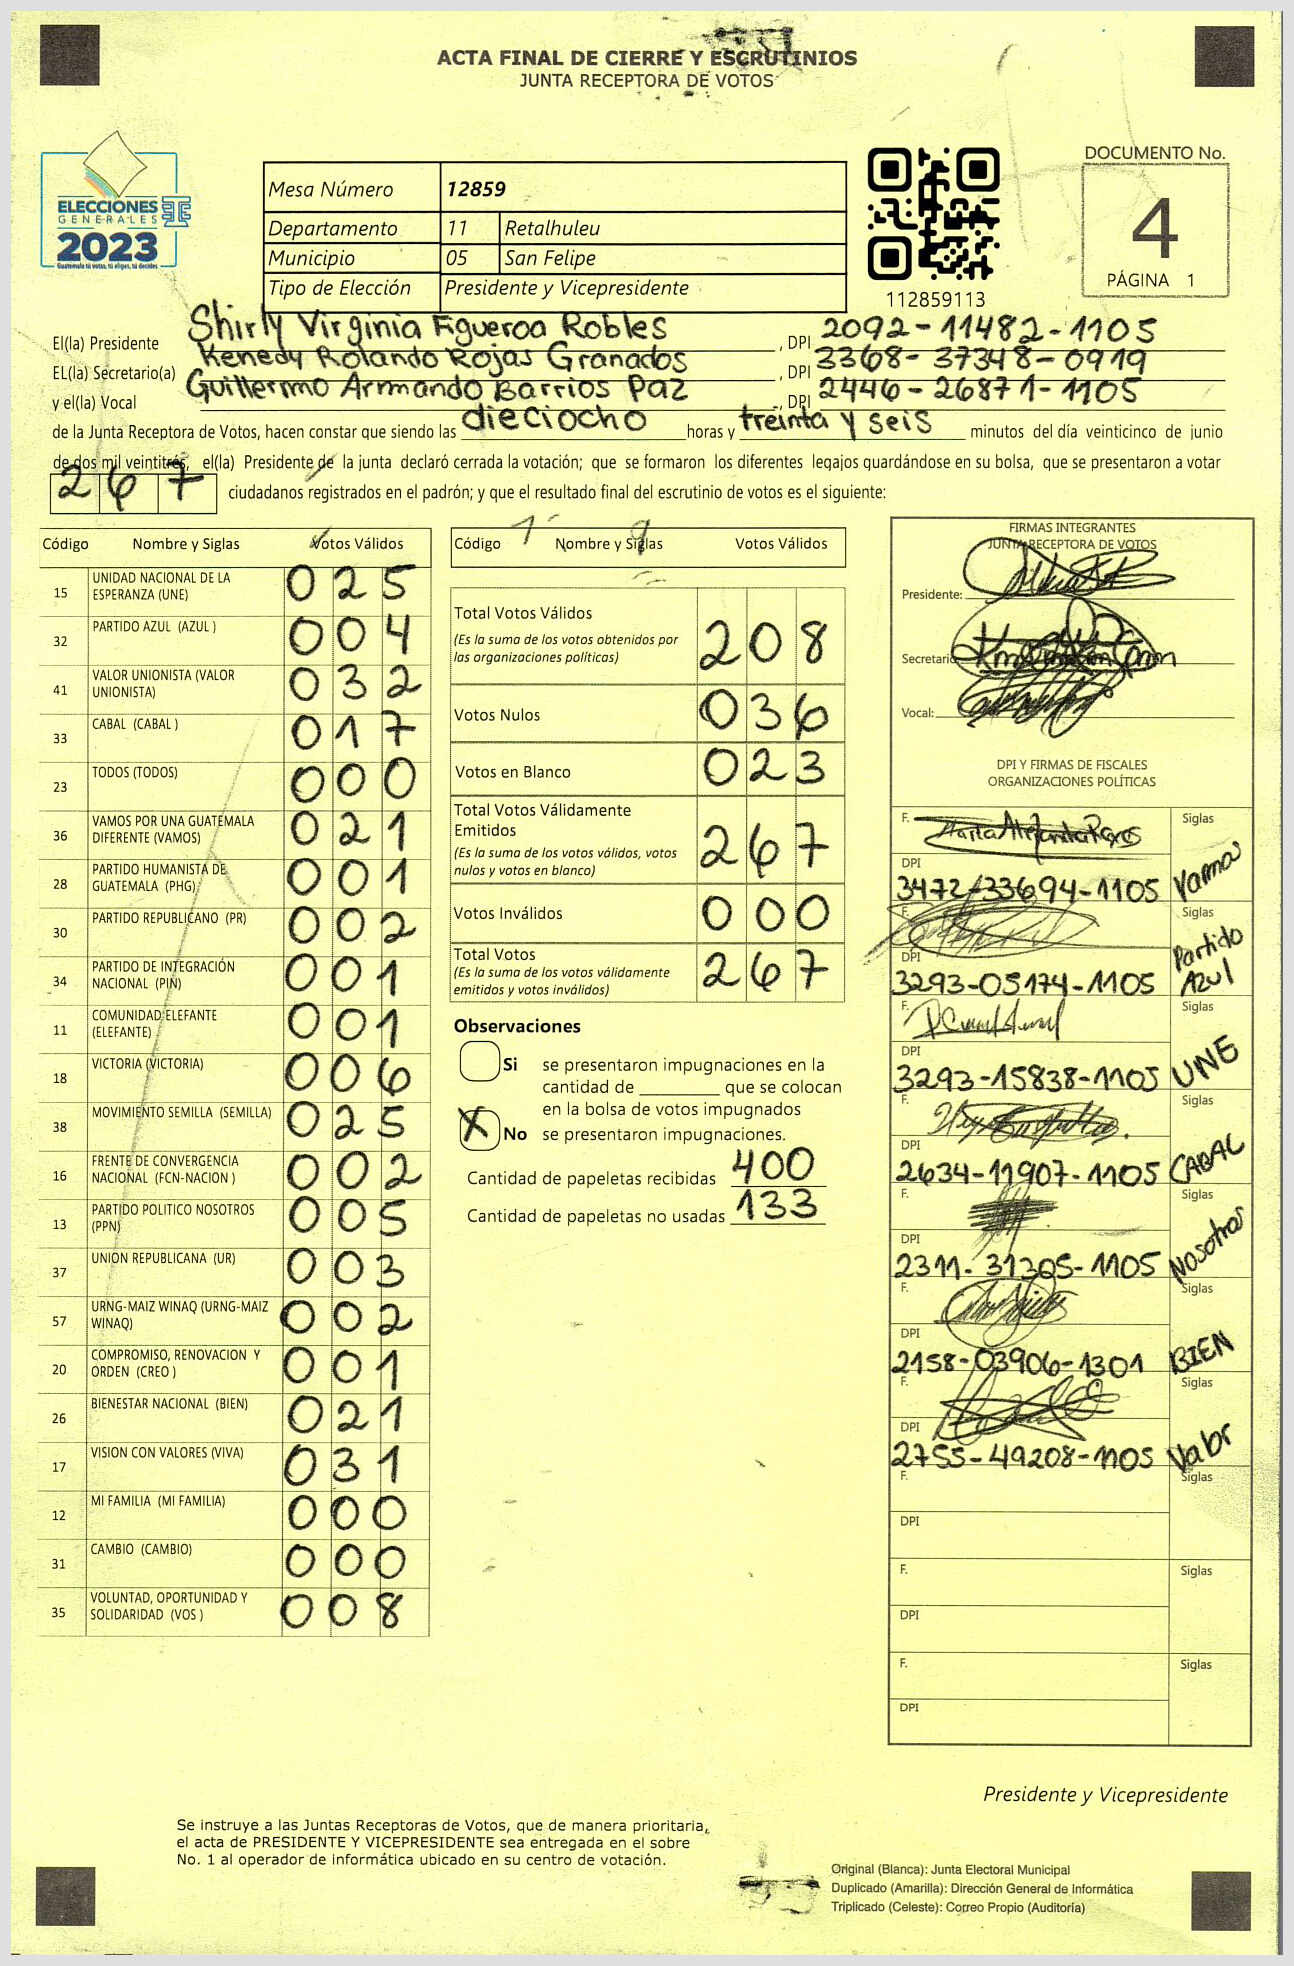 ACTA FINAL DE CIERRE Y ESCRUTINIOS
JUNTA RECEPTORA DE VOTOS
ELECCIONES
GENERALES
2023
Guatemala tú votas, tú eliges, tú decides
Mesa Número 12859
Departamento 11 Retalhuleu
Municipio 05 San Felipe
Tipo de Elección Presidente y Vicepresidente
112859113
DOCUMENTO No.
4
PÁGINA 1
El(la) Presidente Shirly Virginia Figueroa Robles, DPI 2092-11482-1105
EL(la) Secretario(a) Kenedy Rolando Rojas Granados, DPI 3368-37348-0919
y el(la) Vocal Guillermo Armando Barrios Paz, DPI 2446-26871-1105
de la Junta Receptora de Votos, hacen constar que siendo las dieciocho horas y treinta y seis minutos del día veinticinco de junio
de dos mil veintitrés, el(la) Presidente de la junta declaró cerrada la votación; que se formaron los diferentes legajos guardándose en su bolsa, que se presentaron a votar
267 ciudadanos registrados en el padrón; y que el resultado final del escrutinio de votos es el siguiente:
Código Nombre y Siglas Votos Válidos
15 UNIDAD NACIONAL DE LA ESPERANZA (UNE) 025
32 PARTIDO AZUL (AZUL ) 004
41 VALOR UNIONISTA (VALOR UNIONISTA) 032
33 CABAL (CABAL ) 017
23 TODOS (TODOS) 000
36 VAMOS POR UNA GUATEMALA DIFERENTE (VAMOS) 021
28 PARTIDO HUMANISTA DE GUATEMALA (PHG) 001
30 PARTIDO REPUBLICANO (PR) 002
34 PARTIDO DE INTEGRACIÓN NACIONAL (PIN) 001
11 COMUNIDAD ELEFANTE (ELEFANTE) 001
18 VICTORIA (VICTORIA) 006
38 MOVIMIENTO SEMILLA (SEMILLA) 025
16 FRENTE DE CONVERGENCIA NACIONAL (FCN-NACION ) 002
13 PARTIDO POLITICO NOSOTROS (PPN) 005
37 UNION REPUBLICANA (UR) 003
57 URNG-MAIZ WINAQ (URNG-MAIZ WINAQ) 002
20 COMPROMISO, RENOVACION Y ORDEN (CREO ) 001
26 BIENESTAR NACIONAL (BIEN) 021
17 VISION CON VALORES (VIVA) 031
12 MI FAMILIA (MI FAMILIA) 000
31 CAMBIO (CAMBIO) 000
35 VOLUNTAD, OPORTUNIDAD Y SOLIDARIDAD (VOS ) 008
Código Nombre y Siglas Votos Válidos
Total Votos Válidos 208
(Es la suma de los votos obtenidos por
las organizaciones políticas)
Votos Nulos 036
Votos en Blanco 023
Total Votos Válidamente
Emitidos 267
(Es la suma de los votos válidos, votos
nulos y votos en blanco)
Votos Inválidos 000
Total Votos 267
(Es la suma de los votos válidamente
emitidos y votos inválidos)
Observaciones
Si se presentaron impugnaciones en la
cantidad de ________ que se colocan
en la bolsa de votos impugnados
X No se presentaron impugnaciones.
Cantidad de papeletas recibidas 400
Cantidad de papeletas no usadas 133
FIRMAS INTEGRANTES
JUNTA RECEPTORA DE VOTOS
Presidente:
Secretario
Vocal:
DPI Y FIRMAS DE FISCALES
ORGANIZACIONES POLÍTICAS
F. Siglas
DPI
3472-33694-1105 Vamos
F. Siglas
DPI
3293-05174-1105 Partido Azul
F. Siglas
DPI
3293-15838-1105 UNE
F. Siglas
DPI
2634-11907-1105 CABAL
F. Siglas
DPI
2311-31305-1105 Nosotros
F. Siglas
DPI
2158-03906-1301 BIEN
F. Siglas
DPI
2755-49208-1105 Valor
F. Siglas
DPI
F. Siglas
DPI
F. Siglas
DPI
Presidente y Vicepresidente
Se instruye a las Juntas Receptoras de Votos, que de manera prioritaria,
el acta de PRESIDENTE Y VICEPRESIDENTE sea entregada en el sobre
No. 1 al operador de informática ubicado en su centro de votación.
Original (Blanca): Junta Electoral Municipal
Duplicado (Amarilla): Dirección General de Informática
Triplicado (Celeste): Correo Propio (Auditoría)